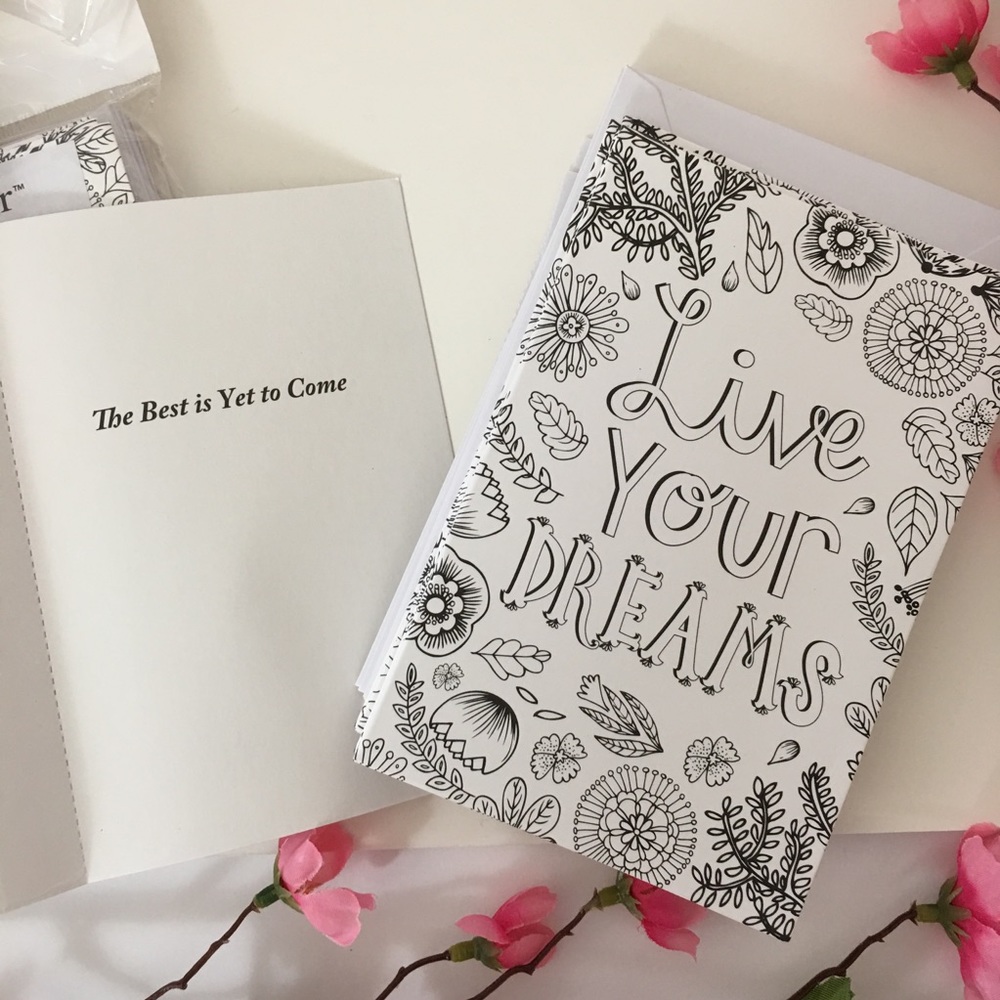 r™
The Best is Yet to Come
Live
Your
DREAMS